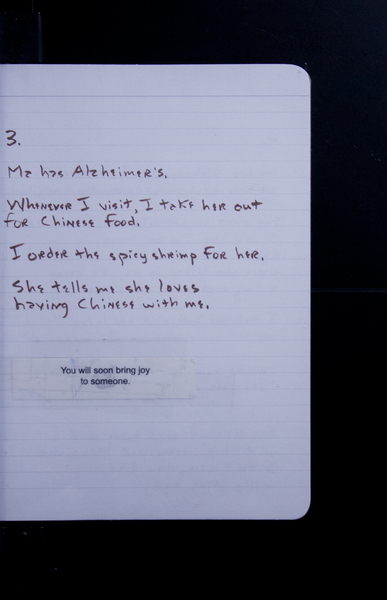 3.
Ma has Alzheimer's.
Whenever I visit, I take her out
for Chinese food.
I order the spicy shrimp for her.
She tells me she loves
having Chinese with me.
You will soon bring joy
to someone.